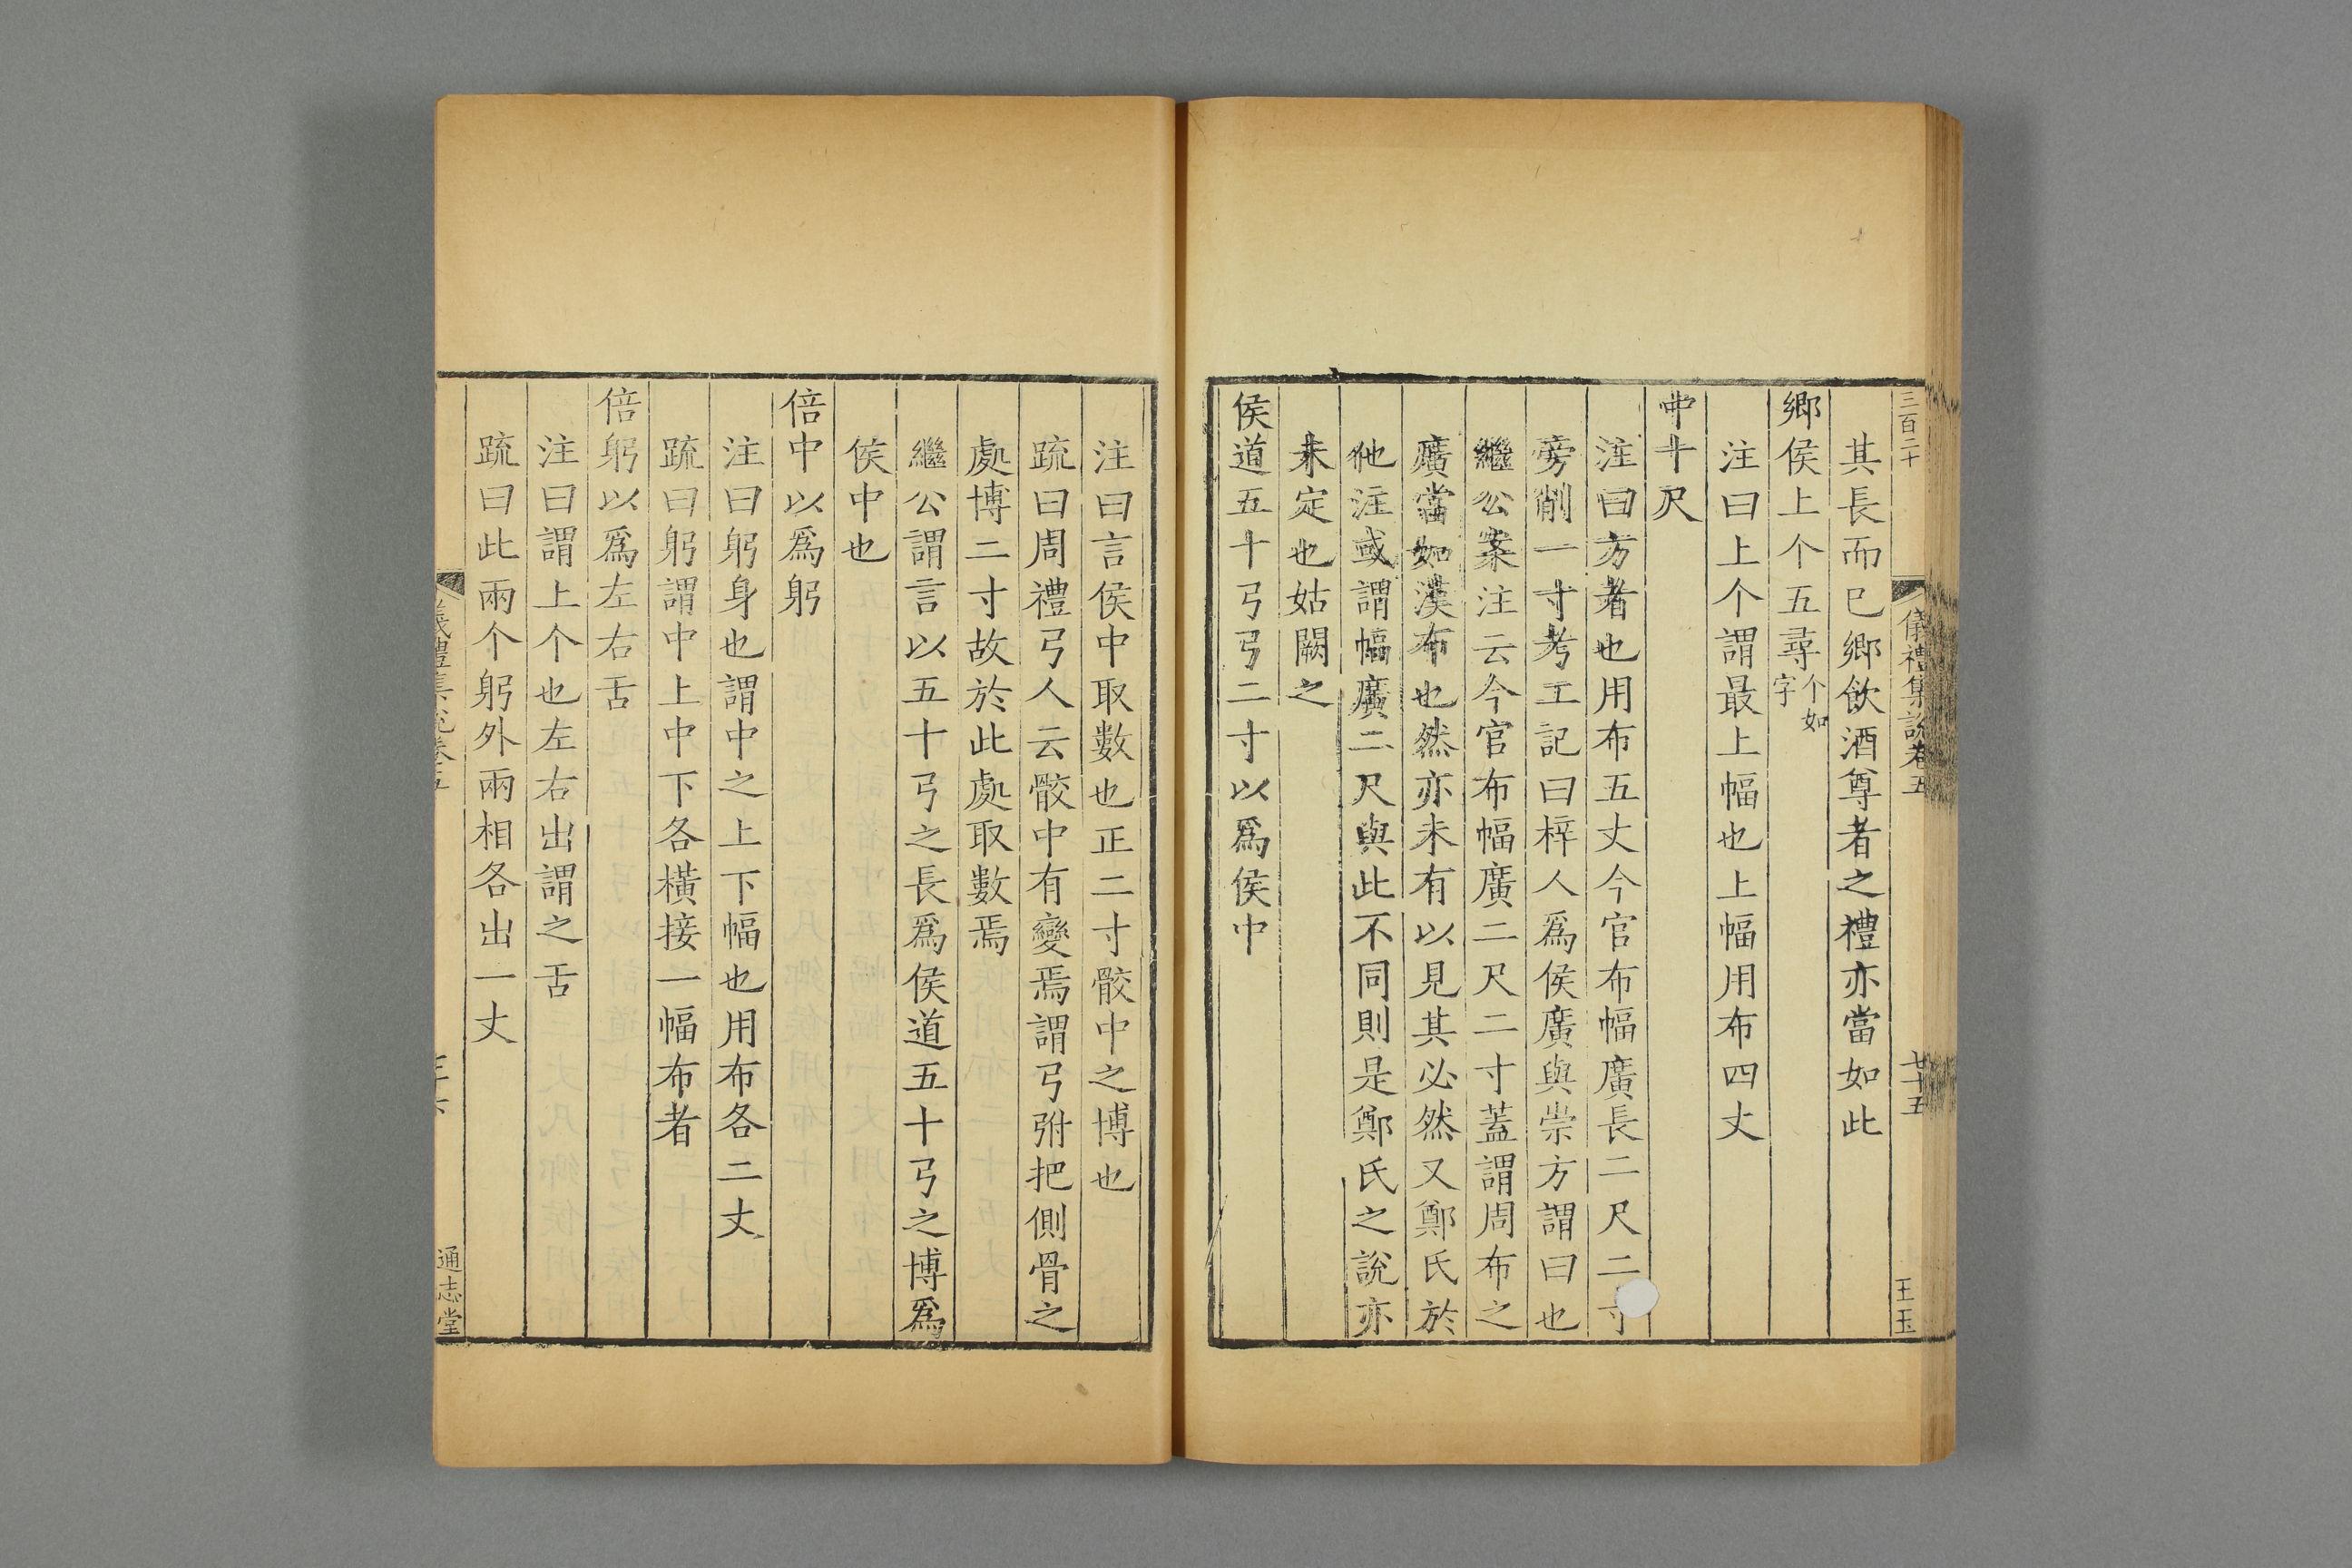 三百二十
儀禮集說卷五
七十五
王玉
其長而已鄉飲酒尊者之禮亦當如此
鄉侯上个五尋个如字
注曰上个謂最上幅也上幅用布四丈
中十尺
注曰方者也用布五丈今官布幅廣長二尺二寸
旁削一寸考工記曰梓人爲侯廣與崇方謂曰也
繼公案注云今官布幅廣二尺二寸蓋謂周布之
廣當如漢布也然亦未有以見其必然又鄭氏於
他注或謂幅廣二尺與此不同則是鄭氏之說亦
未定也姑闕之
侯道五十弓弓二寸以爲侯中
注曰言侯中取數也正二寸骹中之博也
疏曰周禮弓人云骹中有變焉謂弓弣把側骨之
處博二寸故於此處取數焉
繼公謂言以五十弓之長爲侯道五十弓之博爲
侯中也
倍中以爲躬
注曰躬身也謂中之上下幅也用布各二丈
疏曰躬謂中上中下各橫接一幅布者
倍躬以爲左右舌
注曰謂上个也左右出謂之舌
疏曰此兩个躬外兩相各出一丈
通志堂